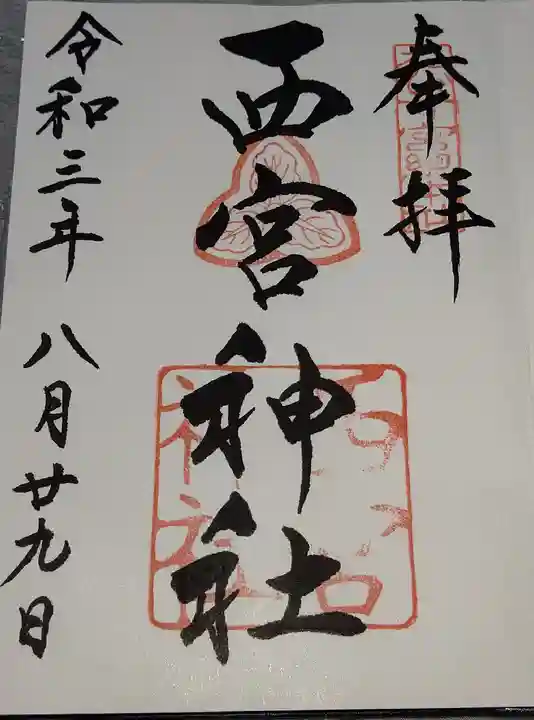 奉拝
西宮神社
令和三年 八月廿九日